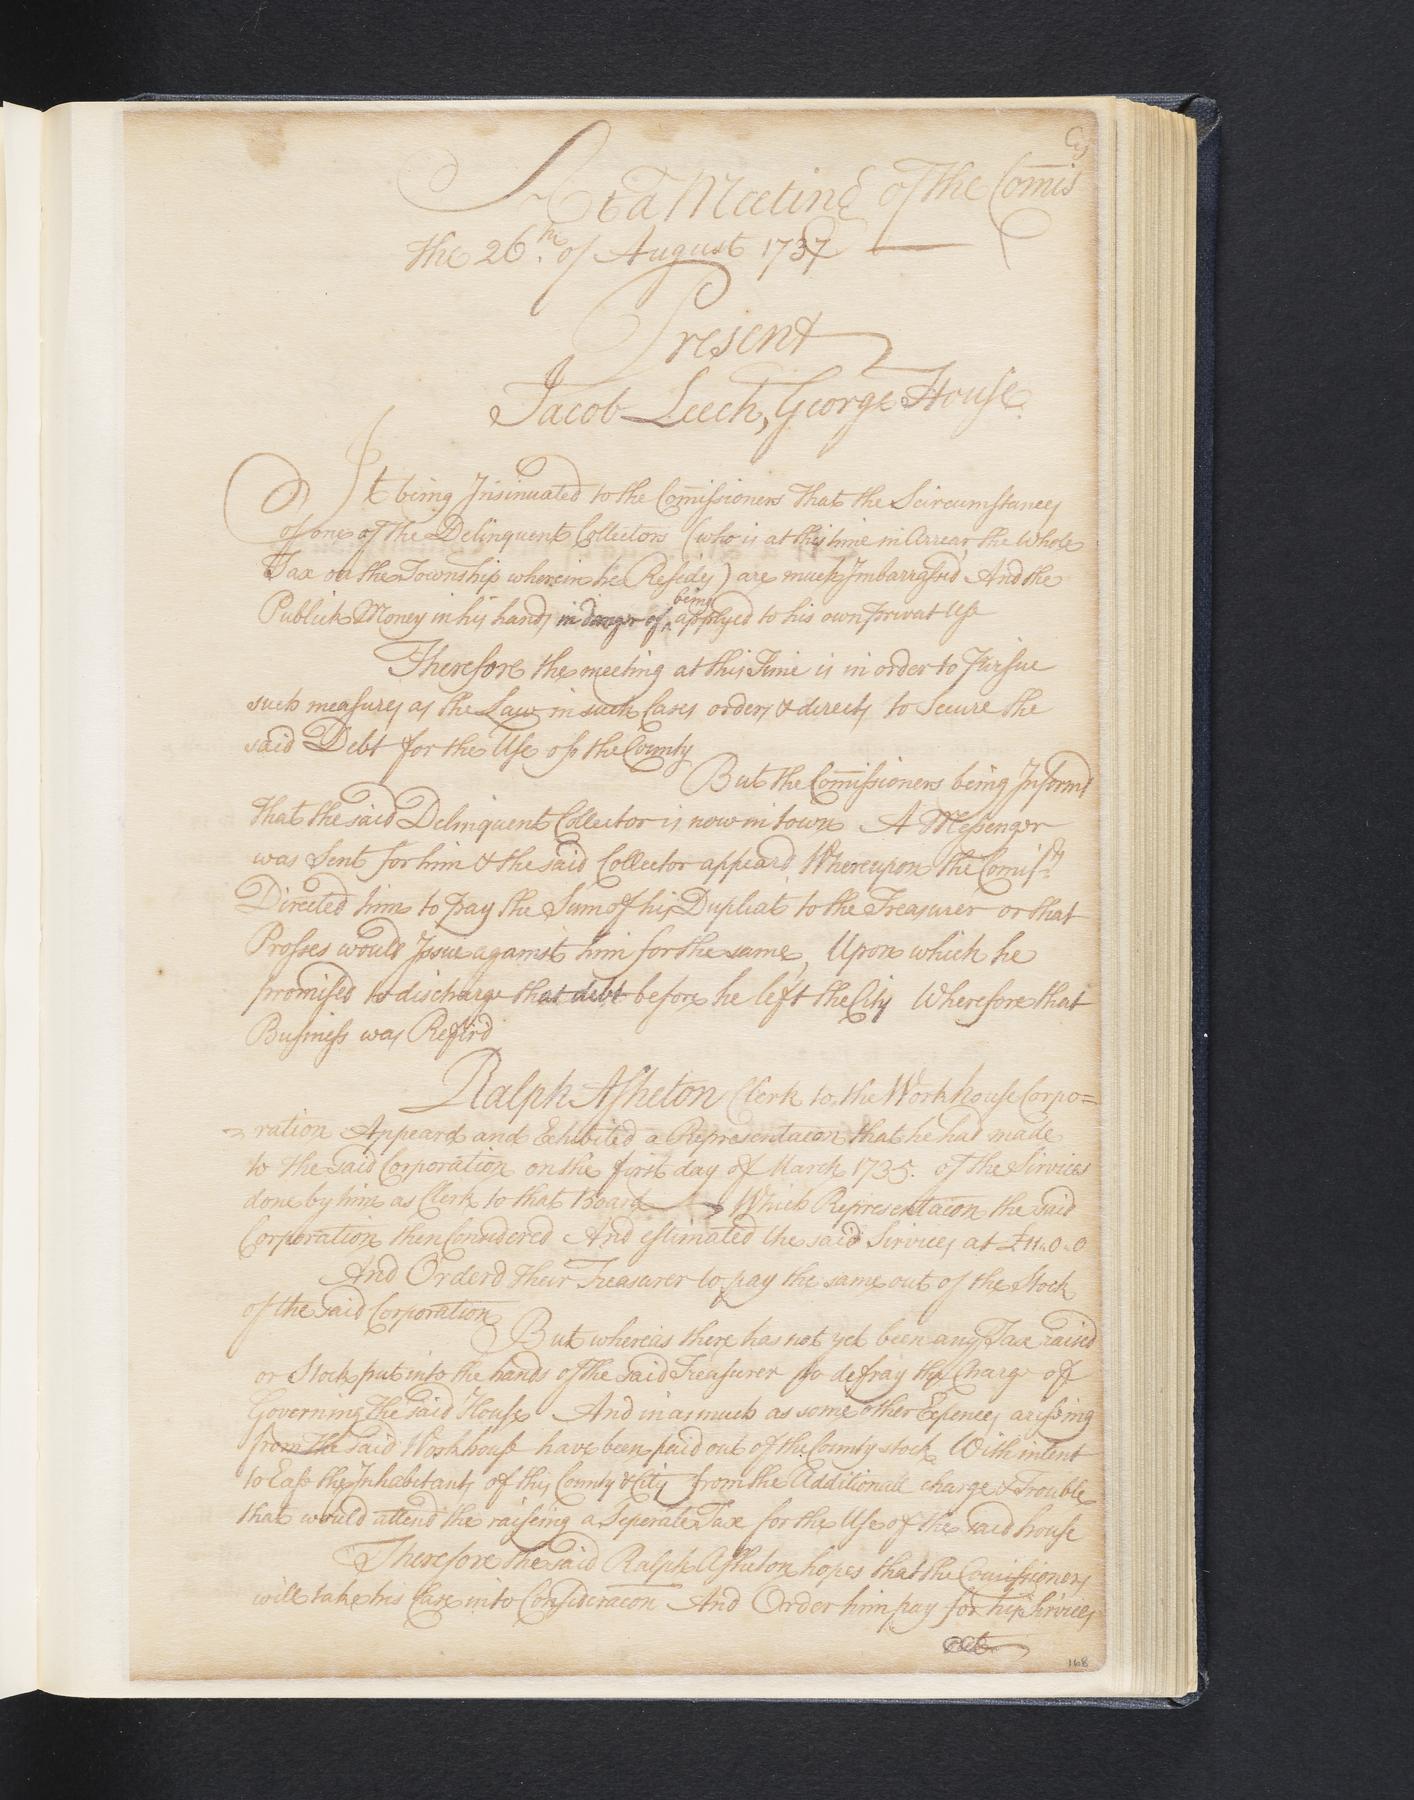 At a Meeting of the Comis
the 26.th of August 1737
Present
Jacob Leech, George House
It being Insinuated to the Comissioners that the Scircumstances
of one of the Delinquent Collectors (who is at this time in Arrear, the Whole
Tax on the Township wherein he Resides) are much Imbarrassed And the
Publick Money in his hands in danger of being applyed to his own privat Use
Therefore the meeting at this Time is in order to Pursue
such measures as the Law in such Cases orders & directs to Secure the
said Debt for the Use off the County
But the Comissioners being Informd
that the said Delinquent Collector is now in town A Messenger
was Sent for him & the said Collector appeard, Whereupon the Comiss.rs
Directed him to pay the Sum of his Duplicat to the Treasurer or that
Prosses would Issue against him for the same, Upon which he
promised to discharge that debt before he left the City Wherefore that
Business was Referd
Ralph Asheton Clerk to the Workhouse Corpo=
ration Appeard and Exhibited a Representacon that he had made
to the said Corporation on the first day of March 1735. of the Sirvices
done by him as Clerk to that Board Which Representacon the said
Corporation then Considered And estimated the said Sirvices at £11..0..0
And Orderd their Treasurer to pay the same out of the Stock
of the said Corporation
But whereas there has not yet been any Tax raised
or Stock put into the hands of the said Treasurer to defray the Charge of
Governing the said House And in as much as some other Expences arissing
from the said Workhouse have been paid out of the County stock, With intent
to Ease the Inhabitants of this County & City from the Additionall charge & Trouble
that would attend the raiseing a Seperate Tax for the Use of the said house
Therefore the said Ralph Assheton hopes that the Comissioners
will take his Case into Consideracon And Order him pay for his Sirvices
168